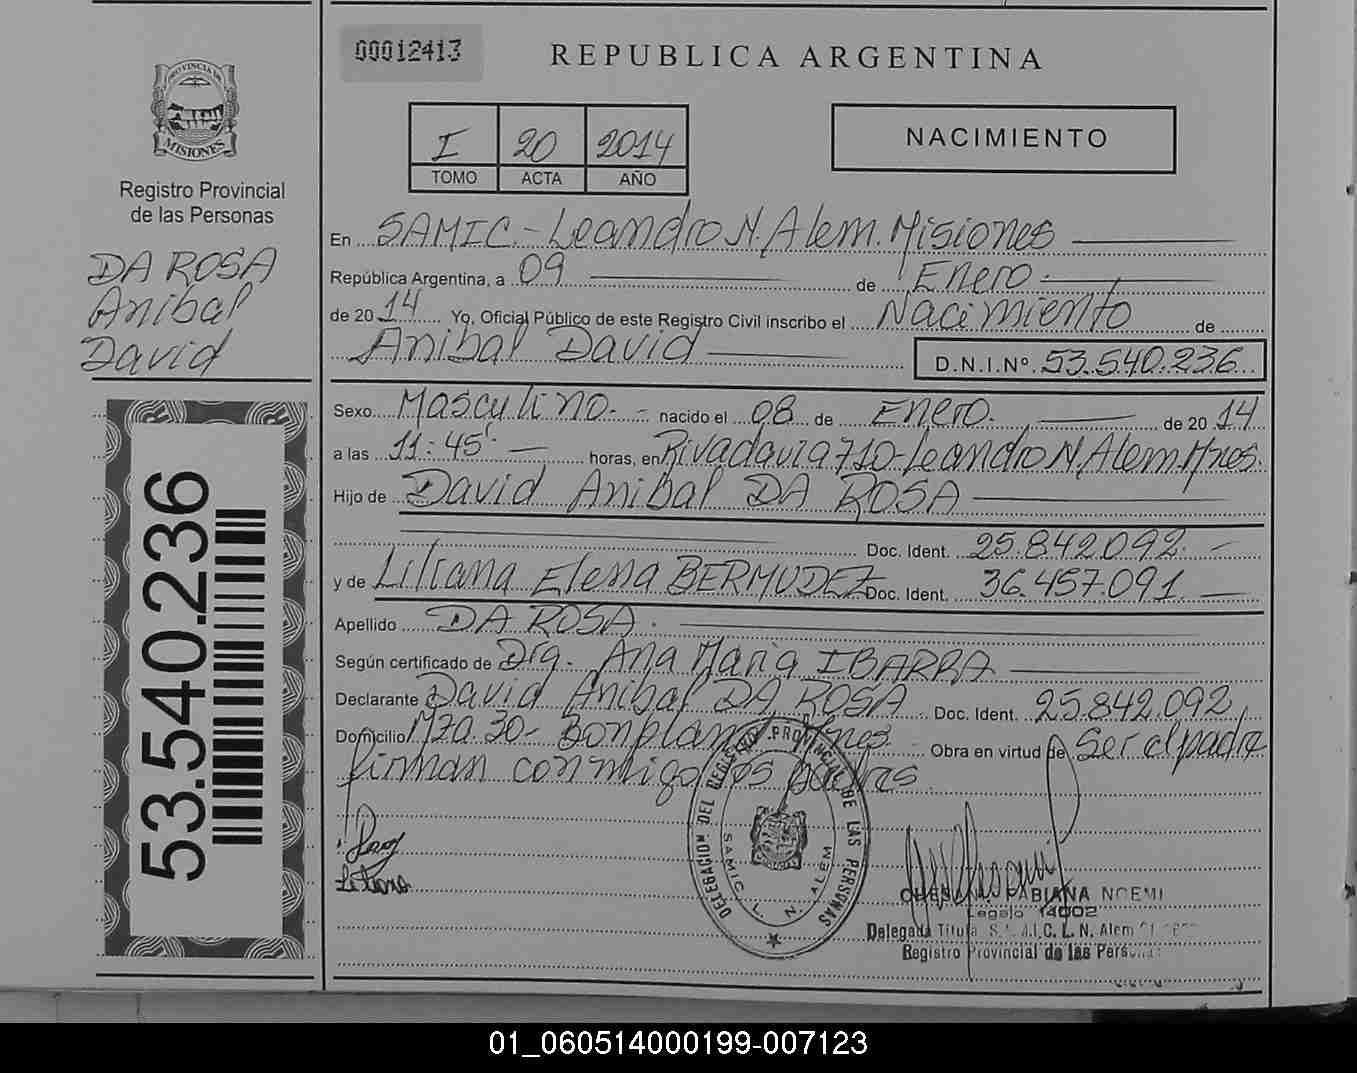 00012413
REPUBLICA ARGENTINA
PROVINCIA DE
MISIONES
Registro Provincial
de las Personas
DA ROSA
Anibal
David
53.540.236
I 20 2014
TOMO ACTA AÑO
NACIMIENTO
En SAMIC.- Leandro N. Alem. Misiones
República Argentina, a 09 de Enero.
de 2014 Yo, Oficial Público de este Registro Civil inscribo el Nacimiento de
Anibal David D.N.I.Nº 53.540.236
Sexo Masculino.- nacido el 08 de Enero. de 2014
a las 11:45'- horas, en Rivadavia 710-Leandro N. Alem. Mnes.
Hijo de David Anibal DA ROSA
Doc. Ident. 25.842.092.-
y de Liliana Elena BERMUDEZ Doc. Ident. 36.457.091.
Apellido DA ROSA.
Según certificado de Dra. Ana Maria IBARRA
Declarante David Anibal DA ROSA. Doc. Ident. 25.842.092
Domicilio Mza 30- Bonpland Mnes.- Obra en virtud de Ser el padre
firman conmigo los padres
Liliana
DELEGACION DEL REGISTRO PROVINCIAL DE LAS PERSONAS
SAMIC L. N. ALEM
FABIANA NOEMI
Legajo 14002
Delegada Titular S.A.M.I.C. L. N. Alem
Registro Provincial de las Personas
01_060514000199-007123